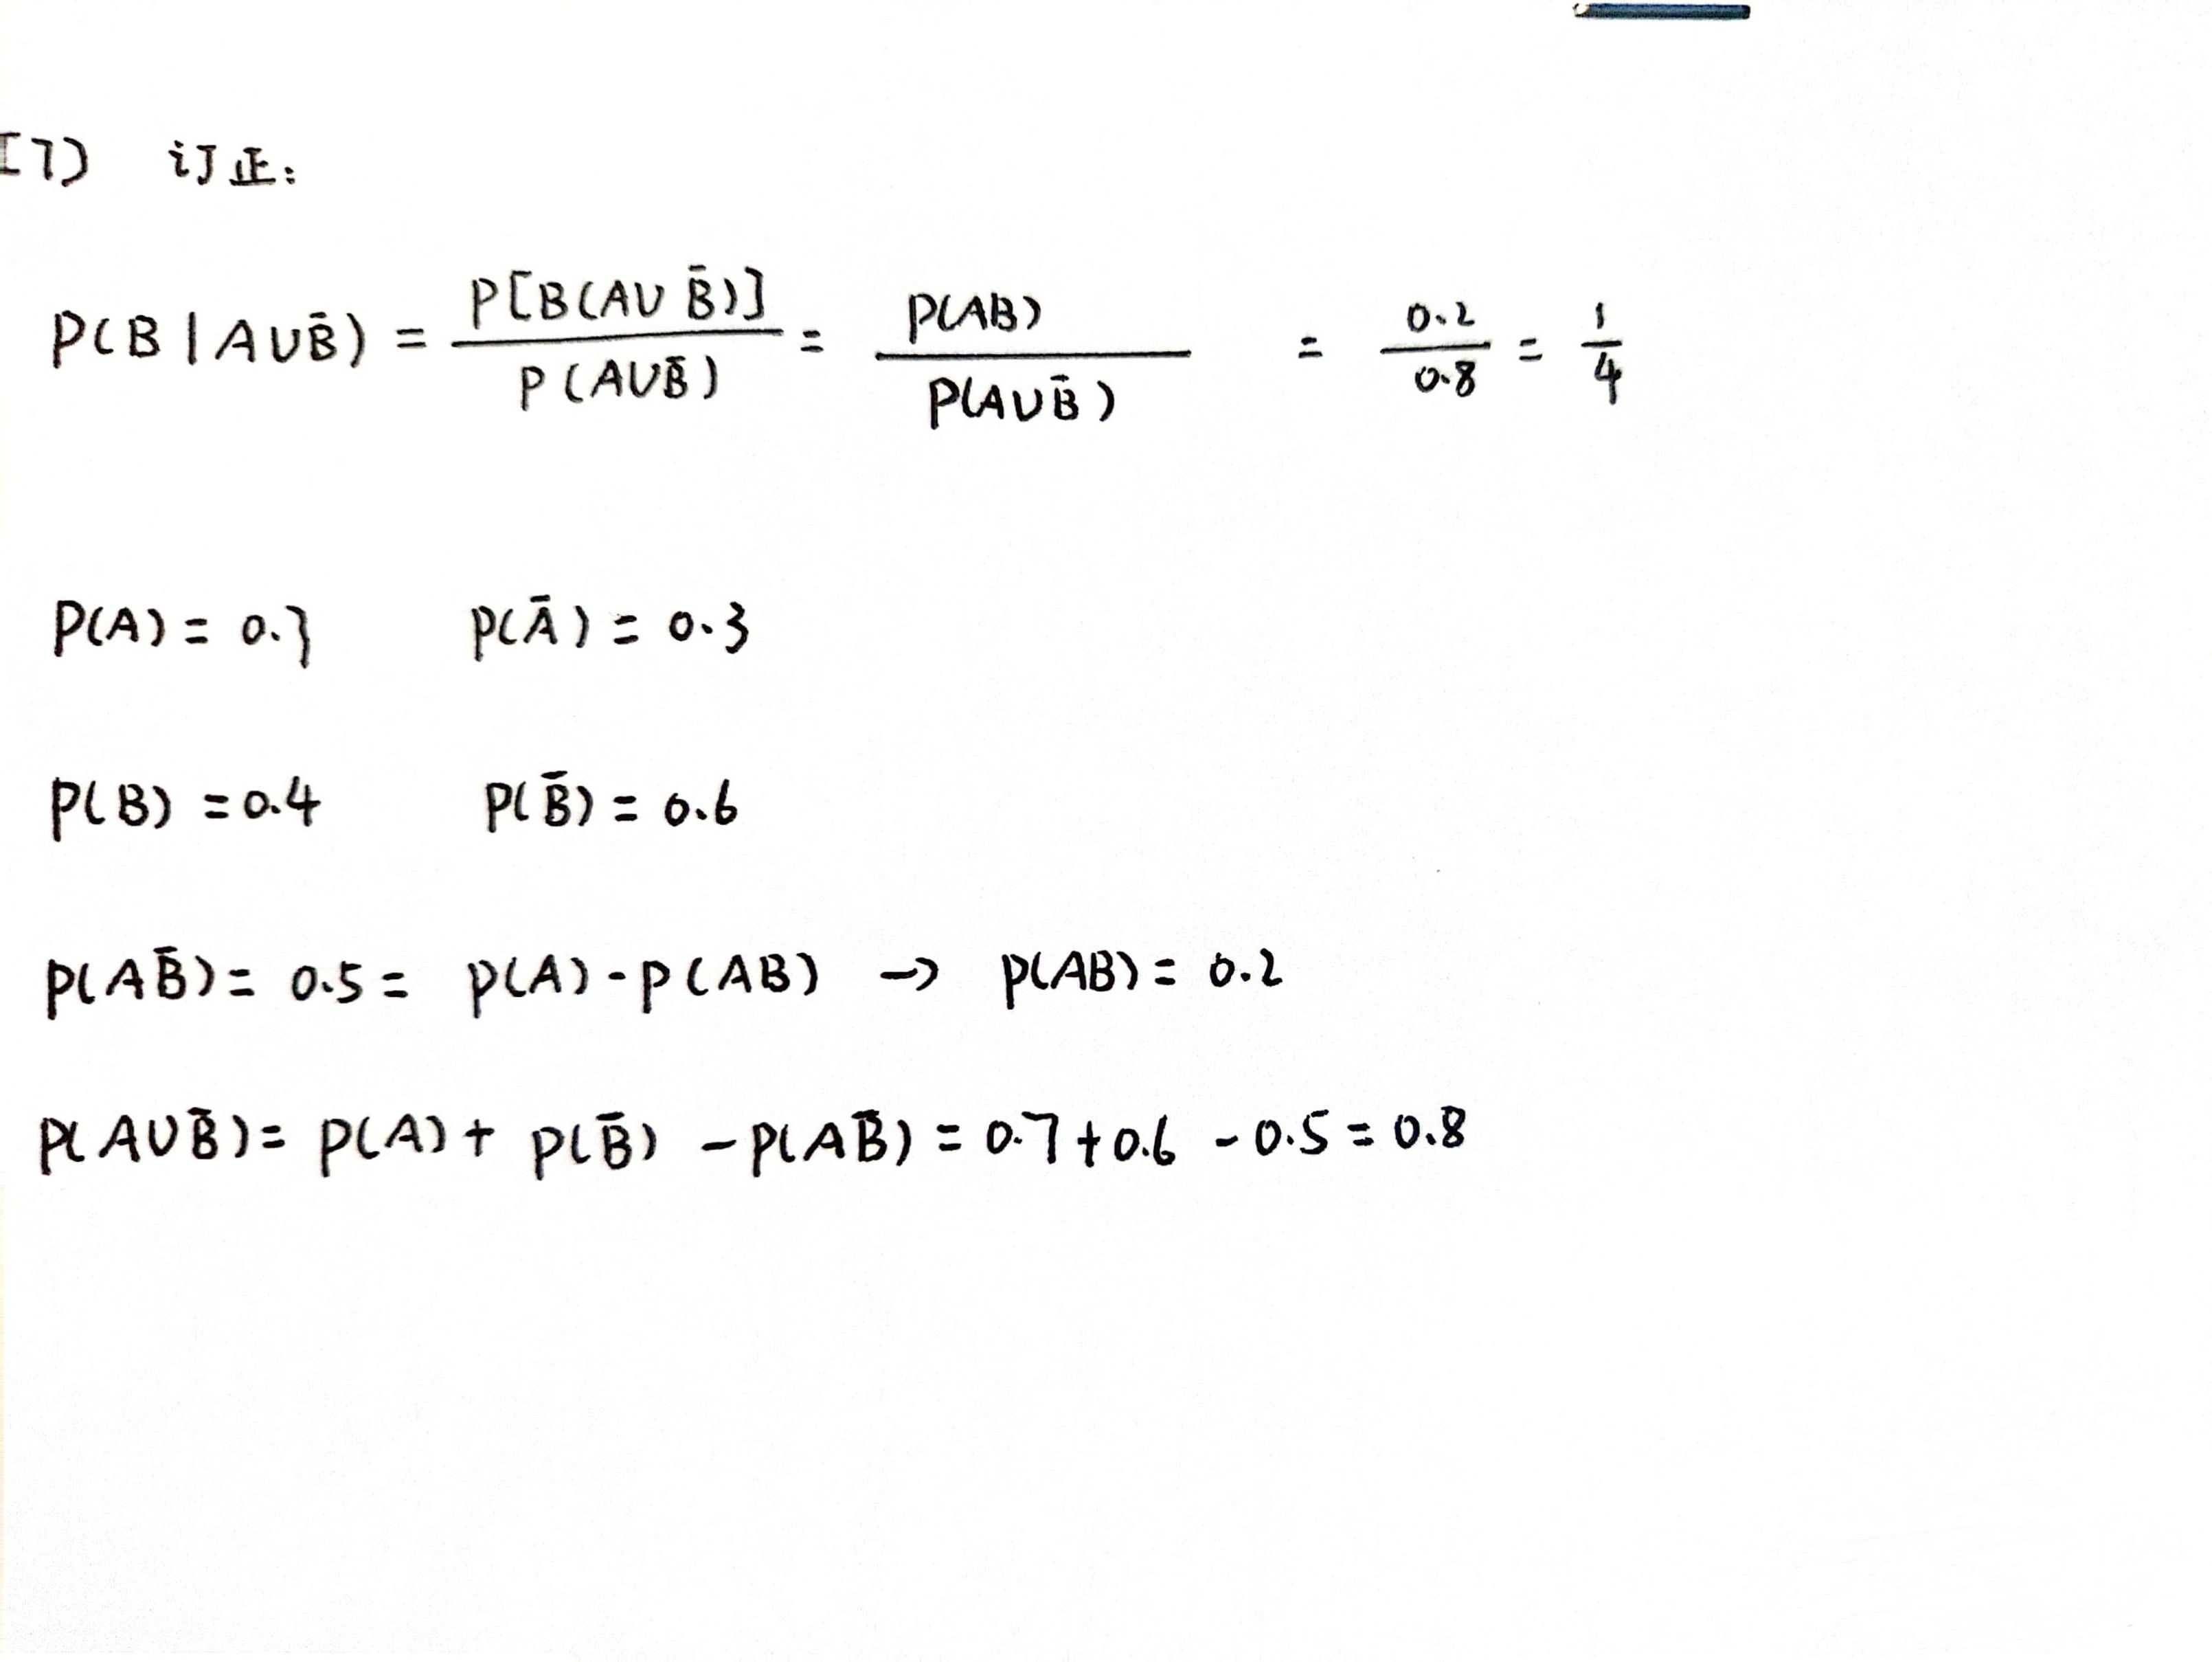 [7] 订正:
P(B|A∪B̄) = P[B(A∪B̄)] / P(A∪B̄) = P(AB) / P(A∪B̄) = 0.2 / 0.8 = 1/4
P(A) = 0.7 P(Ā) = 0.3
P(B) = 0.4 P(B̄) = 0.6
P(AB̄) = 0.5 = P(A) - P(AB) → P(AB) = 0.2
P(A∪B̄) = P(A) + P(B̄) - P(AB̄) = 0.7 + 0.6 - 0.5 = 0.8